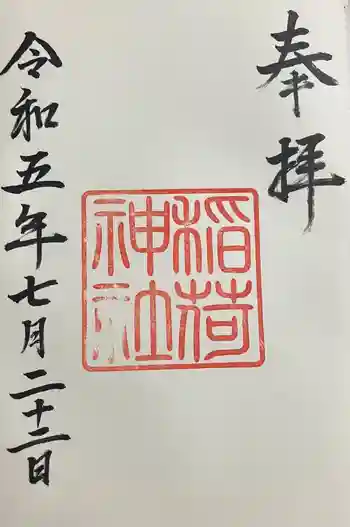 奉拝
稲荷
神社
令和五年七月二十二日